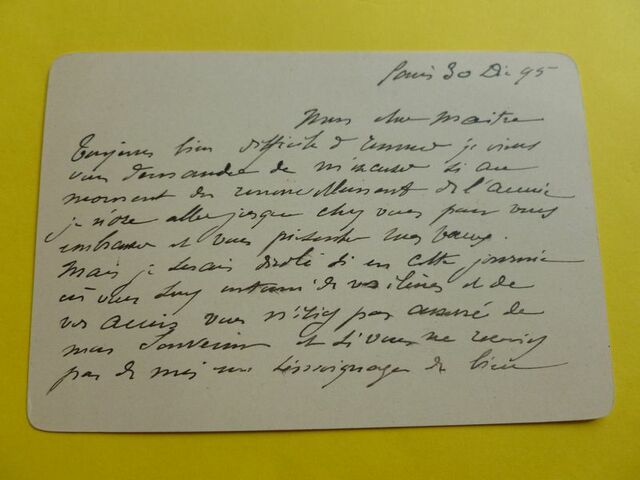 Paris 30 Dec 95
Mon cher Maitre
Toujours bien difficile à remuer je viens
vous demander de m'excuser si au
moment du renouvellement de l'année
je n'ose aller jusque chez vous pour vous
embrasser et vous présenter mes vœux.
Mais je serais désolé si en cette journée
où vous serez entouré de vos élèves et de
vos amis vous n'étiez pas assuré de
mon souvenir et si vous ne receviez
pas de moi un témoignage de bien